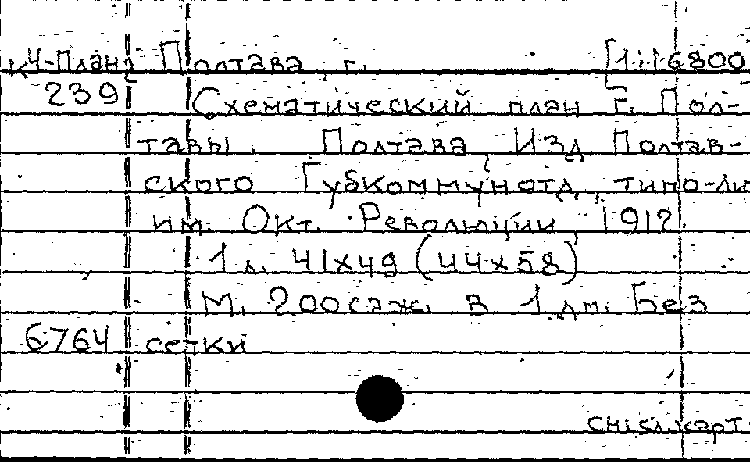 К4-План Полтава, г. [1:16800
239 Схематический план г. Пол-
тавы. Полтава, Изд. Полтав-
ского Губкоммунотд., типо-ли
им. Окт. Революции, 191?
1 л. 41х49 (44х58)
М. 200 саж. в 1 дм. Без
6764 сетки